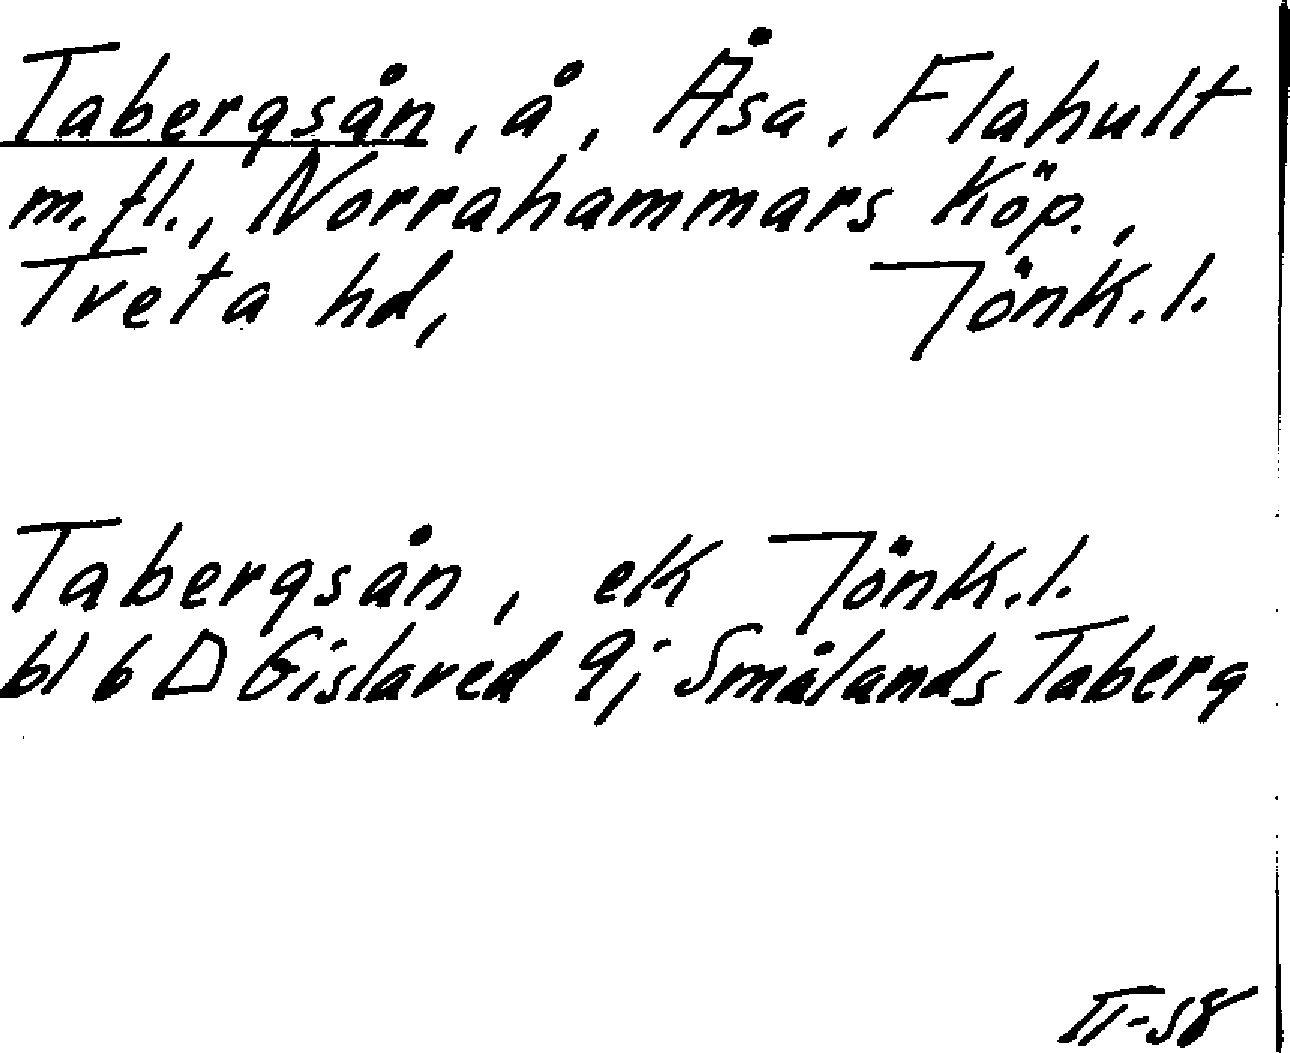 Tabergsån, å, Åsa, Flahult
m.fl., Norrahammars Köp.,
Tveta hd, Jönk.l.
Tabergsån, ek Jönk.l.
bl 6 D Gislaved 9j Smålands Taberg
II-58